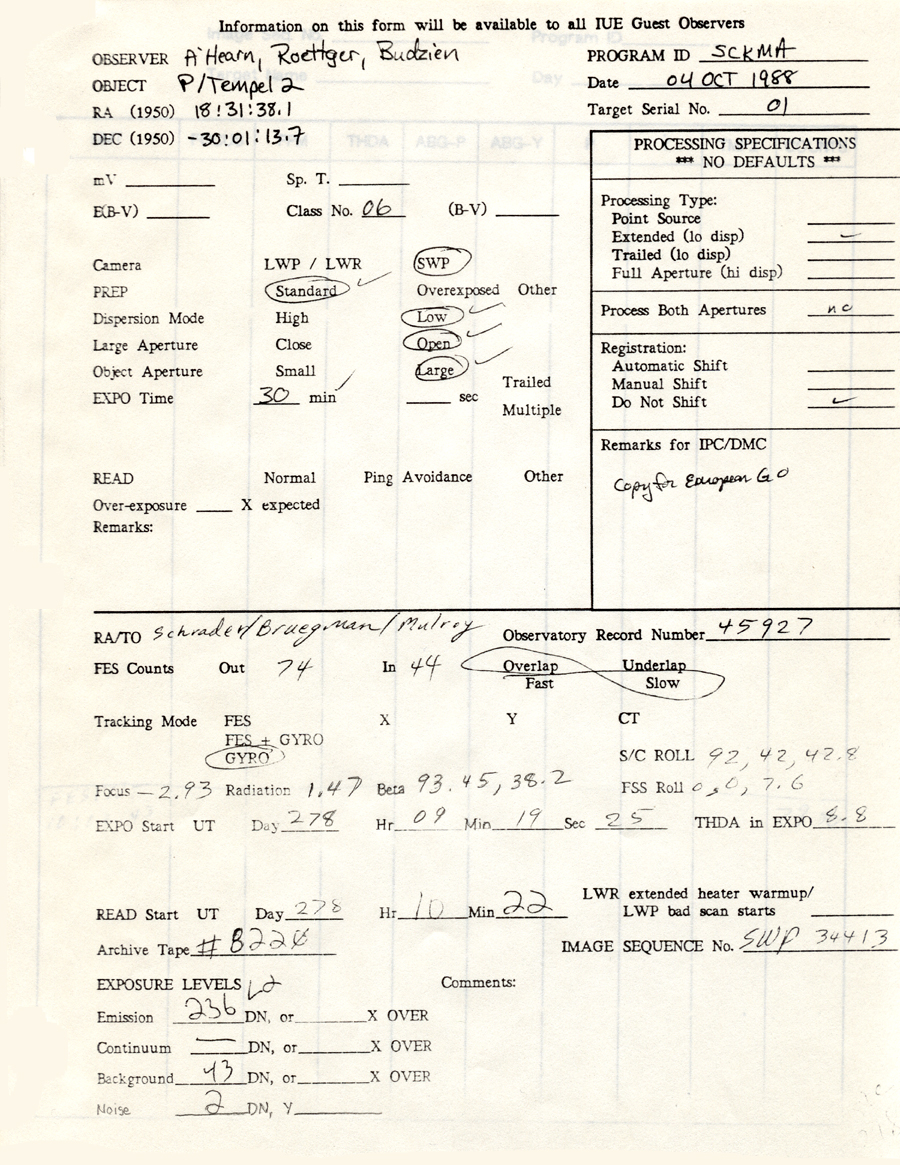 Information on this form will be available to all IUE Guest Observers
OBSERVER A'Hearn, Roettger, Budzien
OBJECT P/Tempel 2
RA (1950) 18:31:38.1
DEC (1950) -30:01:13.7
PROGRAM ID SCKMA
Date 04 OCT 1988
Target Serial No. 01
mV Sp. T.
E(B-V) Class No. 06 (B-V)
Camera LWP / LWR SWP
PREP Standard Overexposed Other
Dispersion Mode High Low
Large Aperture Close Open
Object Aperture Small Large
EXPO Time 30 min sec Trailed
Multiple
READ Normal Ping Avoidance Other
Over-exposure X expected
Remarks:
PROCESSING SPECIFICATIONS
*** NO DEFAULTS ***
Processing Type:
Point Source
Extended (lo disp)
Trailed (lo disp)
Full Aperture (hi disp)
Process Both Apertures no
Registration:
Automatic Shift
Manual Shift
Do Not Shift
Remarks for IPC/DMC
Copy for European GO
RA/TO Schrader/Bruegman/Mulroy Observatory Record Number 45927
FES Counts Out 74 In 44 Overlap Underlap
Fast Slow
Tracking Mode FES X Y CT
FES + GYRO
GYRO S/C ROLL 92, 42, 42.8
Focus -2.93 Radiation 1.47 Beta 93.45, 38.2 FSS Roll 0, 0, 7.6
EXPO Start UT Day 278 Hr 09 Min 19 Sec 25 THDA in EXPO 8.8
LWR extended heater warmup/
READ Start UT Day 278 Hr 10 Min 22 LWP bad scan starts
Archive Tape # IMAGE SEQUENCE No. SWP 34413
EXPOSURE LEVELS Comments:
Emission 236 DN, or X OVER
Continuum — DN, or X OVER
Background 43 DN, or X OVER
Noise 2 DN, Y